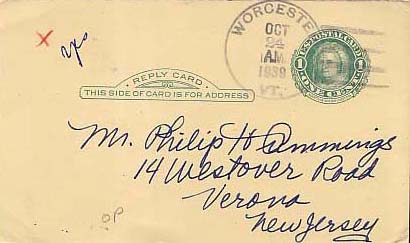 WORCESTER
OCT
24
AM
1939
VT.
U.S. POSTAL CARD
1 ONE CENT 1
REPLY CARD
THIS SIDE OF CARD IS FOR ADDRESS
Mr. Philip H Cummings
14 Westover Road
Verona
New Jersey
OP